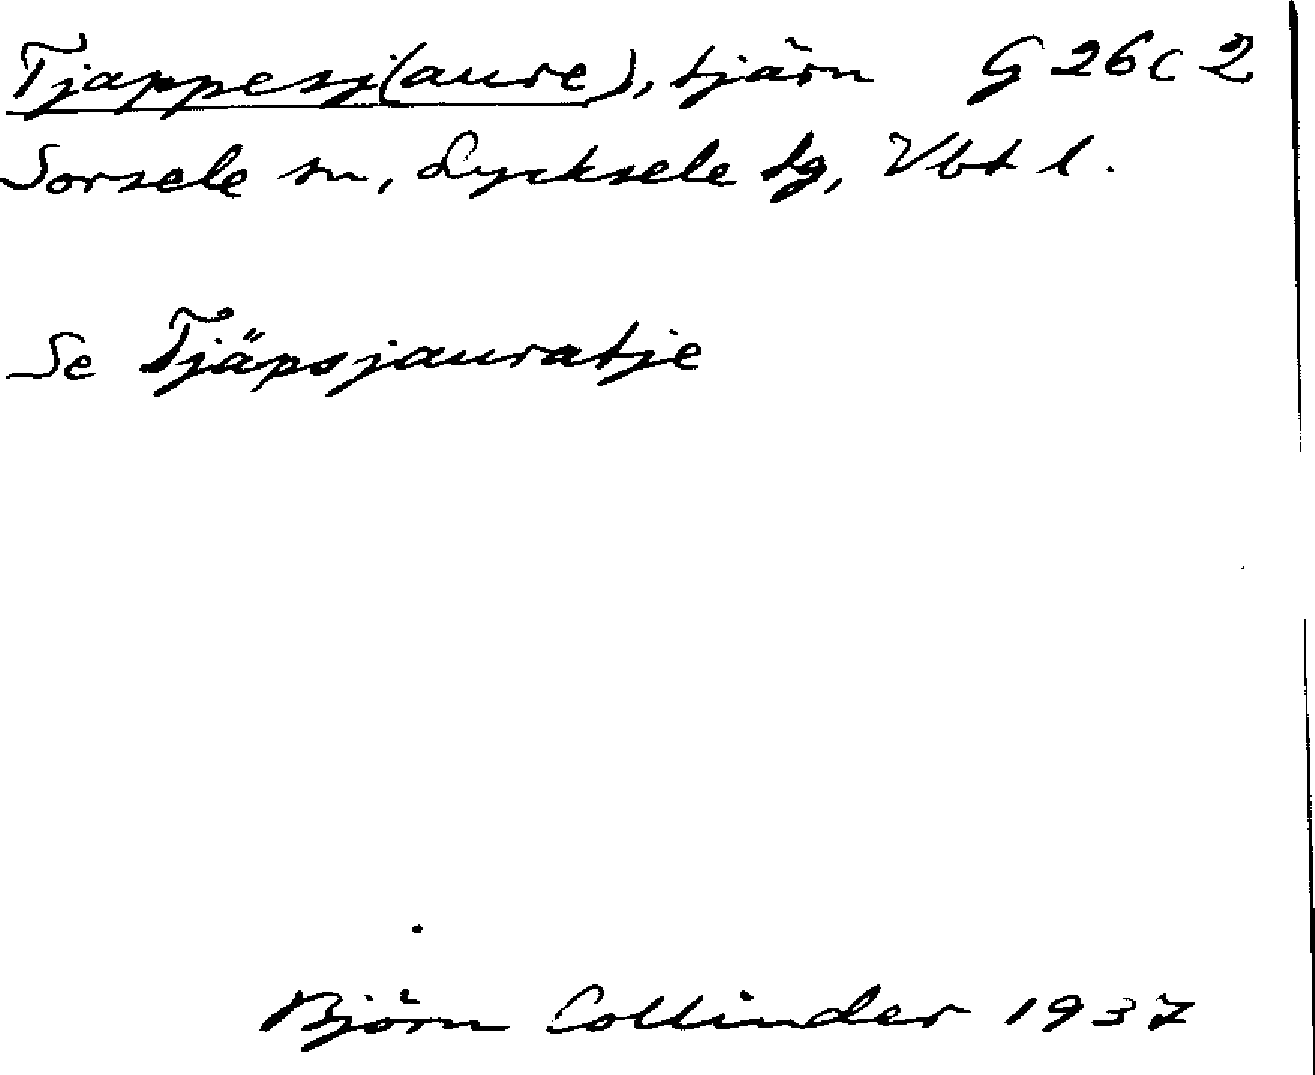 Tjappesj(aure), tjärn G 26 c 2
Sorsele sn, Lycksele tg, Vbt l.
Se Tjäpsjauratje
Björn Collinder 1937